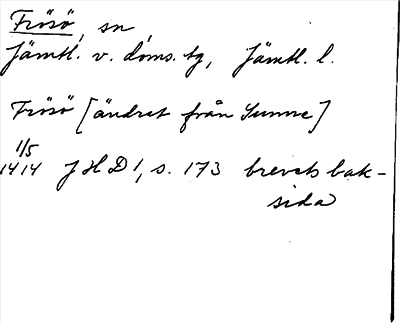 Frösö, sn
Jämtl. v. doms. tg, Jämtl. l.
Frösö [ändrat från Sunne]
1/5
1414 JHD 1, s. 173 brevets bak-
sida